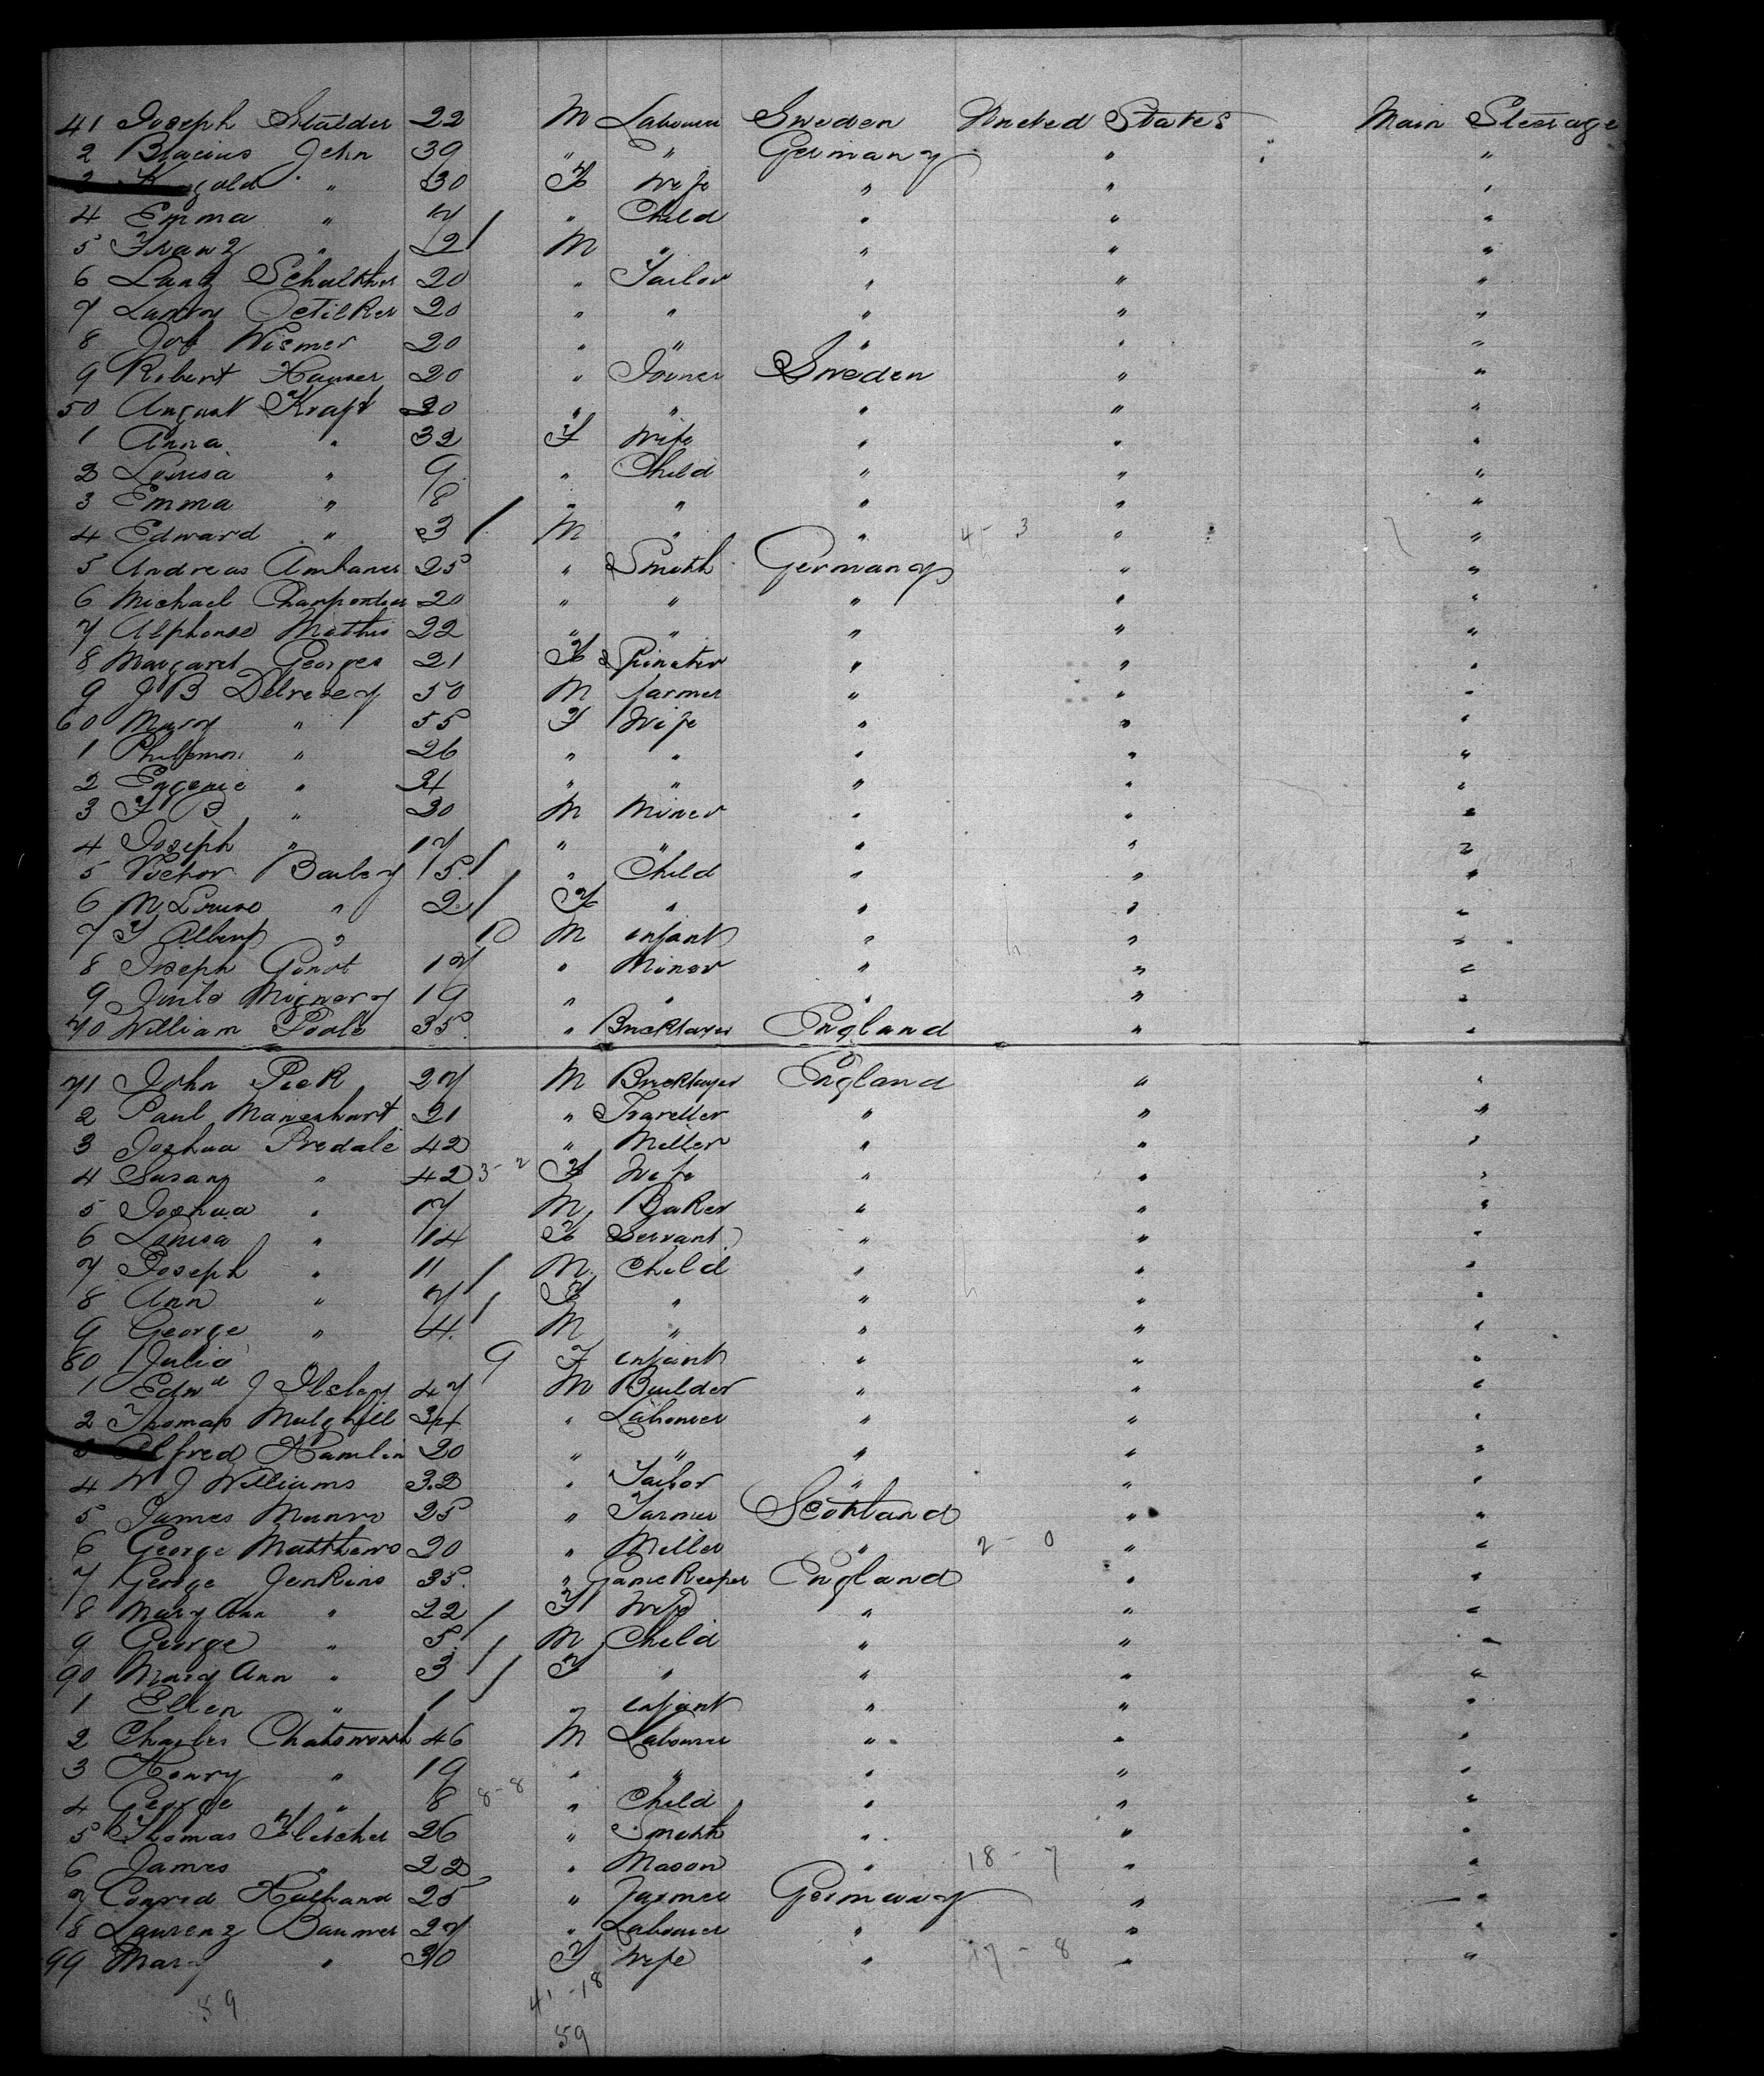 41 Joseph Stalder 22 M Labourer Sweden United States Main Steerage
2 Blacius Jehn 39 " " Germany " "
3 gold " 30 F Wife " " "
4 Emma " 7 " Child " " "
5 Franz " 2 M " " " "
6 Lanz Schulther 20 " Tailor " " "
7 Oetilker 20 " " " " "
8 Job Wismer 20 " " " " "
9 Robert Hauser 20 " Joiner Sweden " "
50 August Kraft 30 " " " " "
1 Anna " 32 F Wife " " "
2 Louisa " 9 " Child " " "
3 Emma " 8 " " " " "
4 Edward " 3 M " " 4 - 3 " "
5 Andreas Amhaner 25 " Smith Germany " "
6 Michael Charpentier 20 " " " " "
7 Alphonse Mathis 22 " " " " "
8 Margaret Georges 21 F Spinster " " "
9 J B Delrezey 50 M farmer " " "
60 Mary " 55 F Wife " " "
1 Philemon " 26 " " " " "
2 Eugenie " 24 " " " " "
3 F B " 30 M Miner " " "
4 Joseph " 17 " " " " "
5 Victor Bailey 5 " Child " " "
6 M Louise " 2 F " " " "
7 Albert " 10 M infant " " "
8 Joseph Genot 17 " Miner " " "
9 Mignery 19 " " " " "
70 William Poole 35 " Bricklayer England " "
71 John Peek 27 M Bricklayer England " "
2 Paul Maneshart 21 " Traveller " " "
3 Joshua Predale 42 " Miller " " "
4 Susan " 42 3 - 2 F Wife " " "
5 Joshua " 17 M Baker " " "
6 Louisa " 14 F Servant " " "
7 Joseph " 11 M Child " " "
8 Ann " 7 F " " " "
9 George " 4 M " " " "
80 Julia " 9 F infant " " "
1 Edwd J Ilsley 47 M Builder " " "
2 Thomas Mulghill 34 " Labourer " " "
3 Alfred Hamlin 20 " " " " "
4 W J Williams 32 " Tailor " " "
5 James Munro 25 " Farmer Scotland " "
6 George Matthews 20 " Miller " 2 - 0 " "
7 George Jenkins 35 " Game Keeper England " "
8 Mary Ann " 22 F Wife " " "
9 George " 5 M Child " " "
90 Mary Ann " 3 F " " " "
1 Ellen " 1 " infant " " "
2 Charles Chatsworth 46 M Labourer " " "
3 Henry " 19 " " " " "
4 George " 8 8 - 8 " Child " " "
5 Thomas Fletcher 26 " Smith " " "
6 James " 22 " Mason " 18 - 7 " "
7 Conrad 25 " Farmer Germany " "
8 Laurenz Baumer 27 " Labourer " " "
99 Mary " 30 F Wife " 17 - 8 " "
41 - 18
59 59